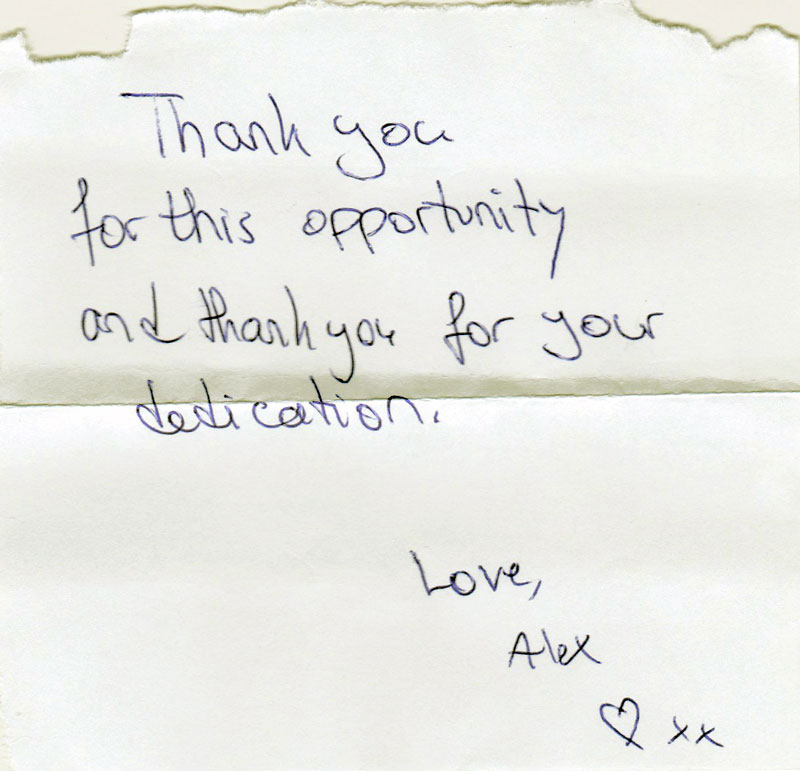 Thank you
for this opportunity
and thank you for your
dedication.
Love,
Alex
♡ xx